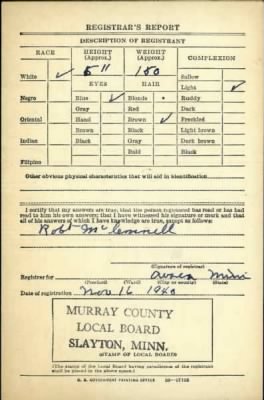 REGISTRAR'S REPORT
DESCRIPTION OF REGISTRANT
RACE HEIGHT (Approx.) WEIGHT (Approx.) COMPLEXION
White ✓ 5 11 150 Sallow
EYES HAIR Light ✓
Negro Blue ✓ Blonde Ruddy
Gray Red Dark
Oriental Hazel Brown ✓ Freckled
Brown Black Light brown
Indian Black Gray Dark brown
Bald Black
Filipino
Other obvious physical characteristics that will aid in identification
I certify that my answers are true; that the person registered has read or has had
read to him his own answers; that I have witnessed his signature or mark and that
all of his answers of which I have knowledge are true, except as follows:
Robt
(Signature of registrar)
Registrar for Minn
(Precinct) (Ward) (City or county) (State)
Date of registration Nov 16 1940
MURRAY COUNTY
LOCAL BOARD
SLAYTON, MINN.
(STAMP OF LOCAL BOARD)
(The stamp of the Local Board having jurisdiction of the registrant
shall be placed in the above space.)
U. S. GOVERNMENT PRINTING OFFICE